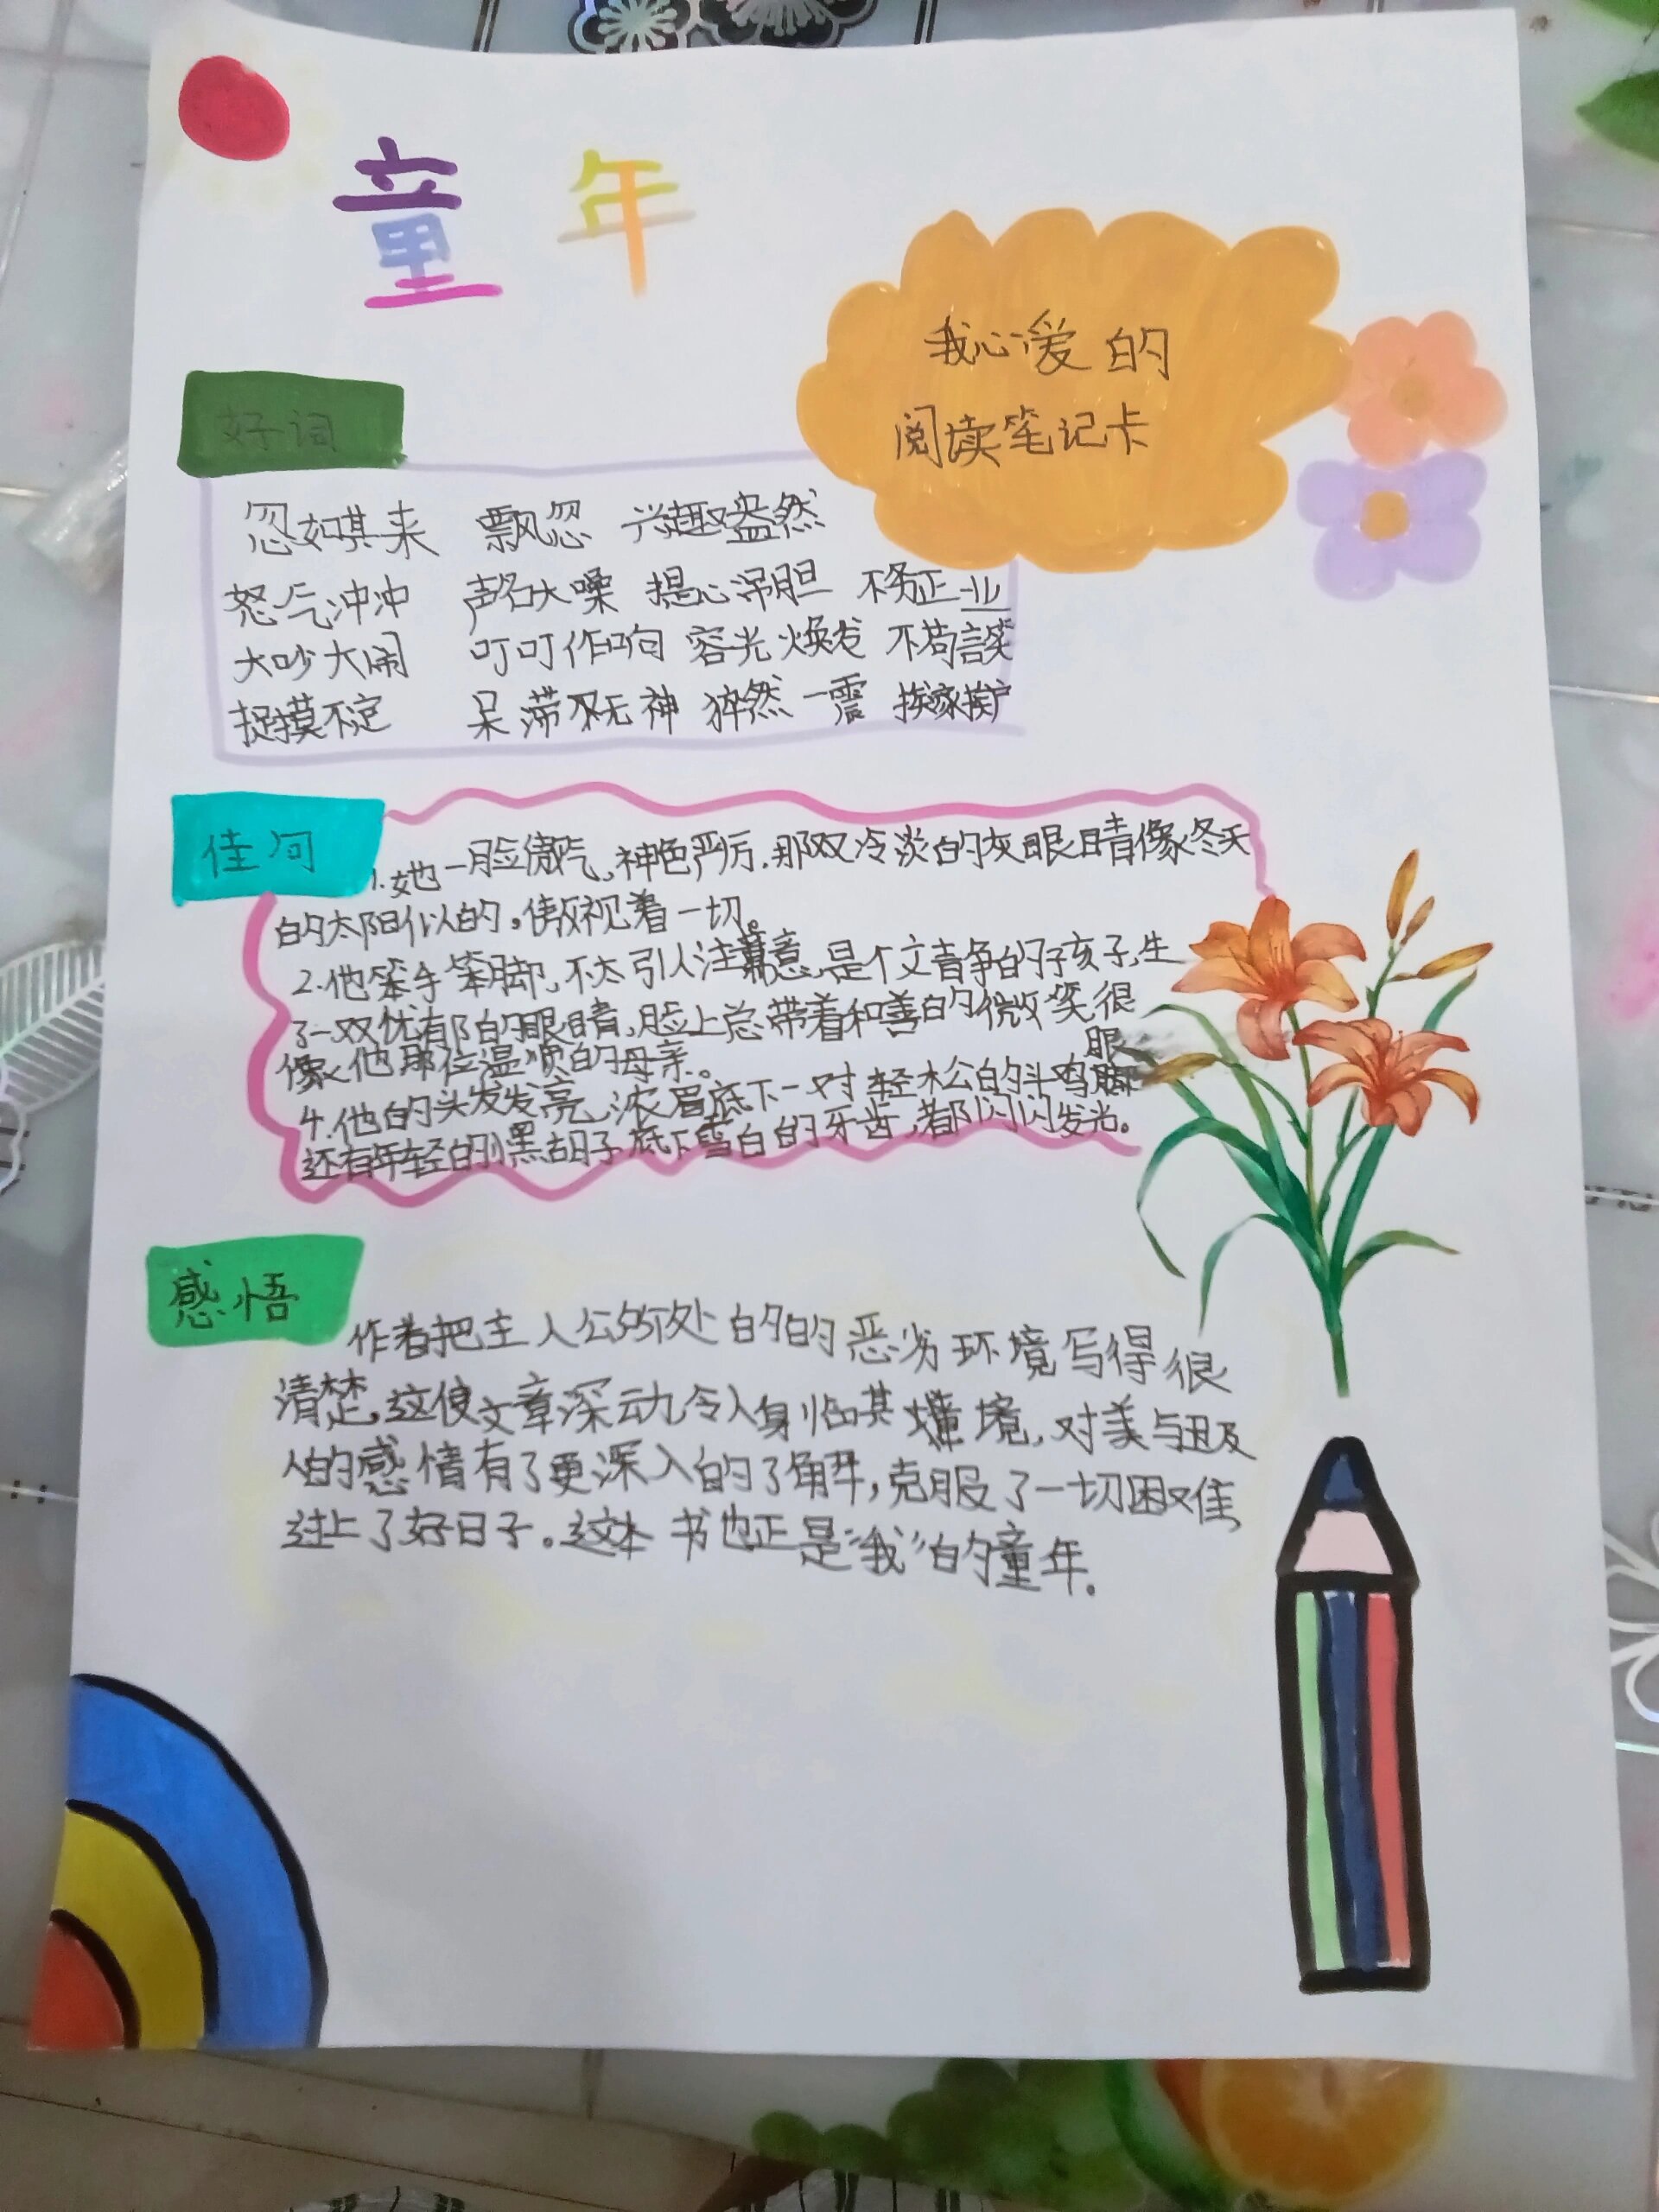 童年
我心爱的
阅读笔记卡
好词
忽如其来 飘忽 兴趣盎然
怒气冲冲 声名大噪 提心吊胆 不务正业
大吵大闹 叮叮作响 容光焕发 不苟言笑
捉摸不定 呆滞无神 猝然一震 挨家挨户
佳句
1.她一脸傲气,神色严厉.那双冷淡的灰眼睛像冬天
的太阳似的。傲视着一切。
2.他笨手笨脚,不太引人注意,是个文静的孩子,生
了一双忧郁的眼睛,脸上总带着和善的微笑,很
像他那位温顺的母亲。
4.他的头发发亮,浓眉底下一对轻松的斗鸡眼
还有年轻的小黑胡子底下雪白的牙齿,都闪闪发光。
感悟
作者把主人公所处的的恶劣环境写得很
清楚,这使文章深动,令人身临其境,对美与丑及
人的感情有了更深入的了解,克服了一切困难
过上了好日子。这本书也正是“我”的童年.